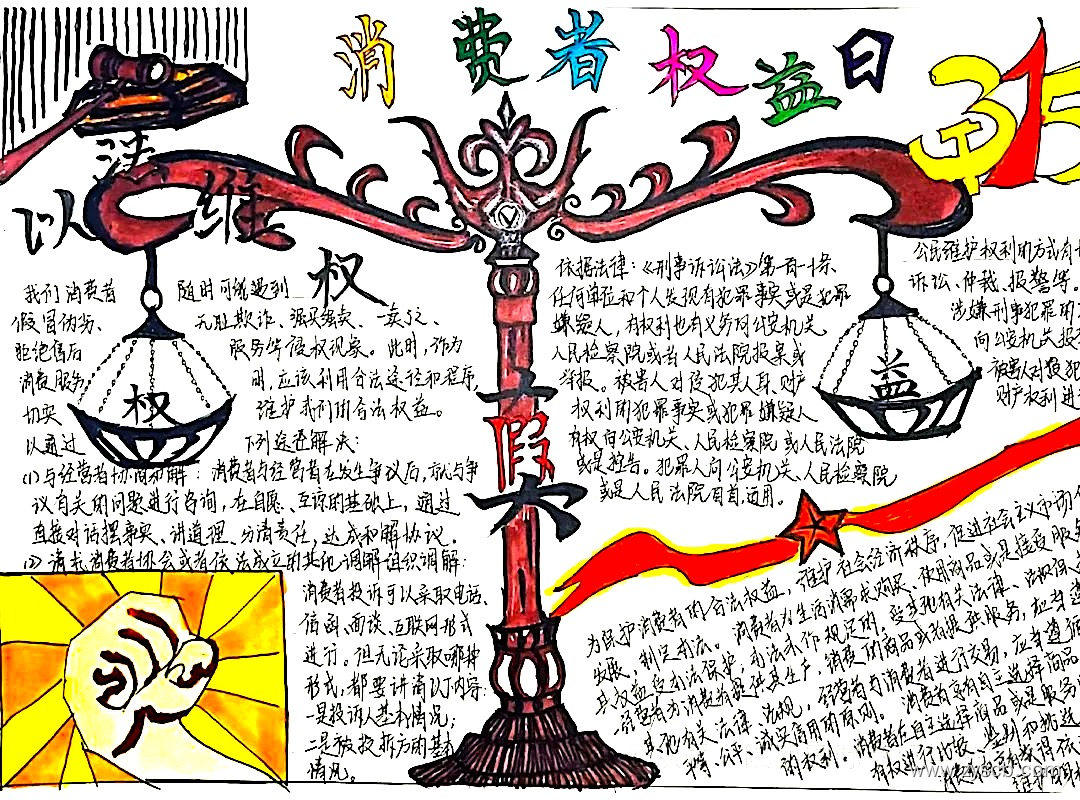 消费者权益日
315
法
以 维
权
权
益
一
假
我们消费者 随时可能遇到
假冒伪劣、 欺诈、强买强卖、
拒绝售后 服务等侵权现象。此时,作为
消费 时,应该利用合法途径和程序,
切实 维护我们的合法权益。
以通过 下列途径解决:
(1)与经营者协商和解:消费者与经营者在发生争议后,就与争
议有关的问题进行咨询,在自愿、互谅的基础上,通过
直接对话摆事实、讲道理、分清责任,达成和解协议。
(2)请求消费者协会或者依法成立的其他调解组织调解:
消费者投诉可以采取电话、
信函、面谈、互联网形式
进行。但无论采取哪种
形式,都要讲清以下内容:
一是投诉人基本情况;
二是被投诉方的基本
情况。
依据法律:《刑事诉讼法》第一百一十条、
任何单位和个人发现有犯罪事实或是犯罪
嫌疑人,有权利也有义务向公安机关
人民检察院或者人民法院报案或
举报。被害人对侵犯其人身、财产
权利的犯罪事实或犯罪嫌疑人
有权向公安机关、人民检察院或人民法院
或是控告。犯罪人向公安机关、人民检察院
或是人民法院自首适用。
公民维护权利的方式有
诉讼、仲裁、报警等。
涉嫌刑事犯罪的
向公安机关报
被害人对侵犯
财产权利进
为保护消费者的合法权益,维护社会经济秩序,促进社会主义市场
发展,制定本法。消费者为生活消费或购买、使用商品或是接受服务
其权益受本法保护,本法未作规定的,受其他有关法律、法规保
经营者为消费者提供其生产、消费的商品或我提供服务,应当遵
其他有关法律、法规,经营者为消费者进行交易,应当遵循
平等、公平、诚实信用的原则。消费者享有自主选择商品
的权利。消费者在自主选择商品或是服务
有权进行比较、鉴别和挑选